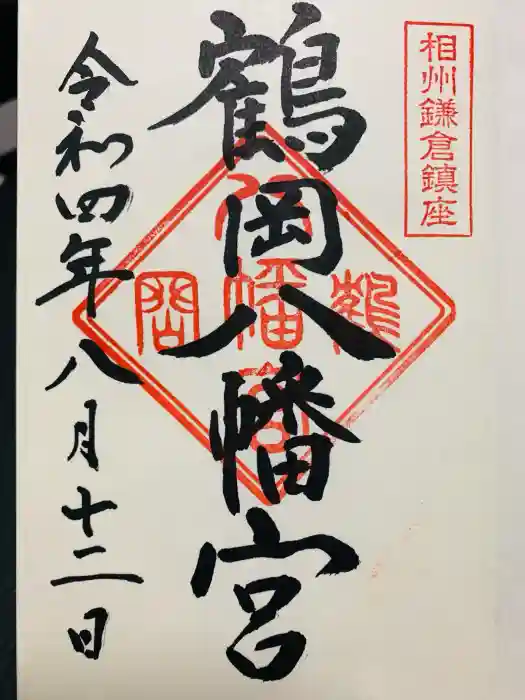 相州鎌倉鎮座
鶴岡八幡宮
鶴
八幡宮
岡
令和四年八月十二日